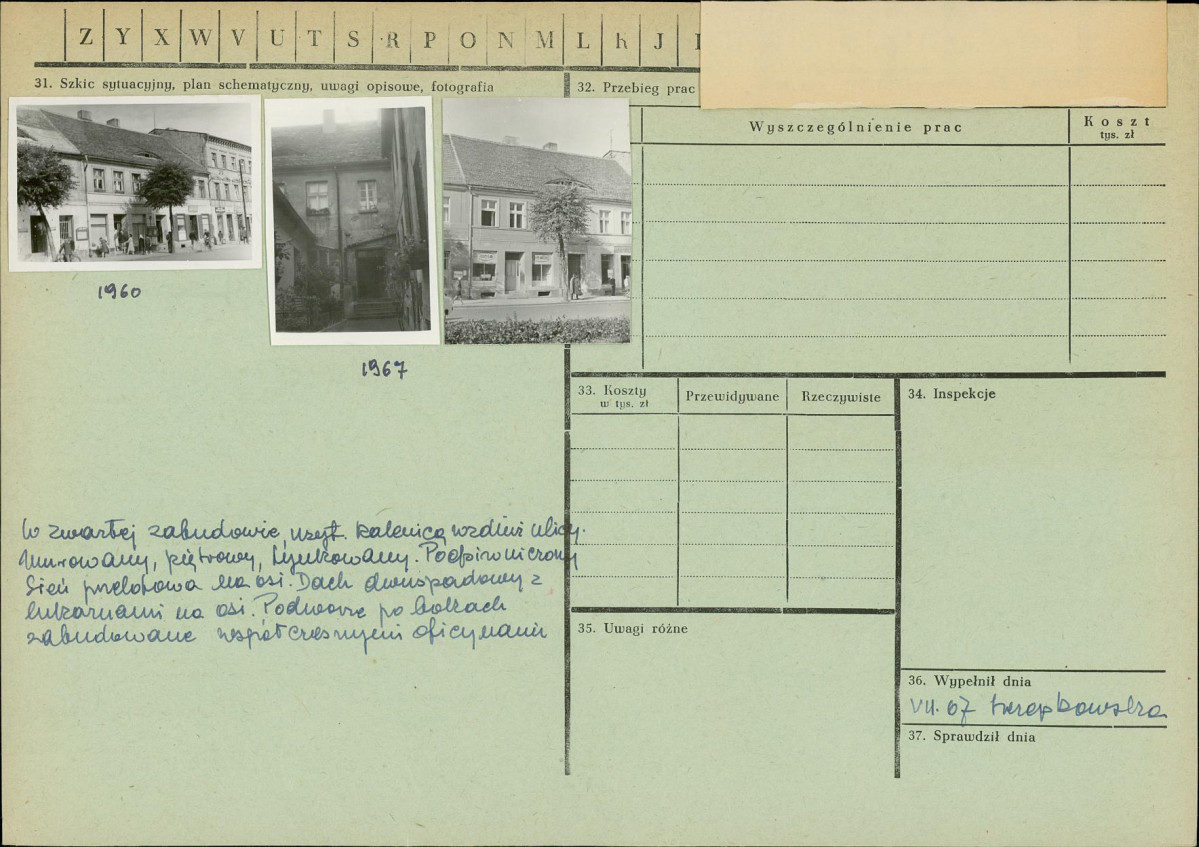 Z Y X W V U T S R P O N M L K J I
31. Szkic sytuacyjny, plan schematyczny, uwagi opisowe, fotografia
1960
1967
W zwartej zabudowie, usyt. kalenicą wzdłuż ulicy.
Murowany, piętrowy, tynkowany. Podpiwniczony
Sień przelotowa na osi. Dach dwuspadowy z
lukarnami na osi. Podwórze po bokach
zabudowane współczesnymi oficynami
32. Przebieg prac
Wyszczególnienie prac
Koszt
tys. zł
33. Koszty
w tys. zł
Przewidywane
Rzeczywiste
34. Inspekcje
35. Uwagi różne
36. Wypełnił dnia
VII. 67
37. Sprawdził dnia